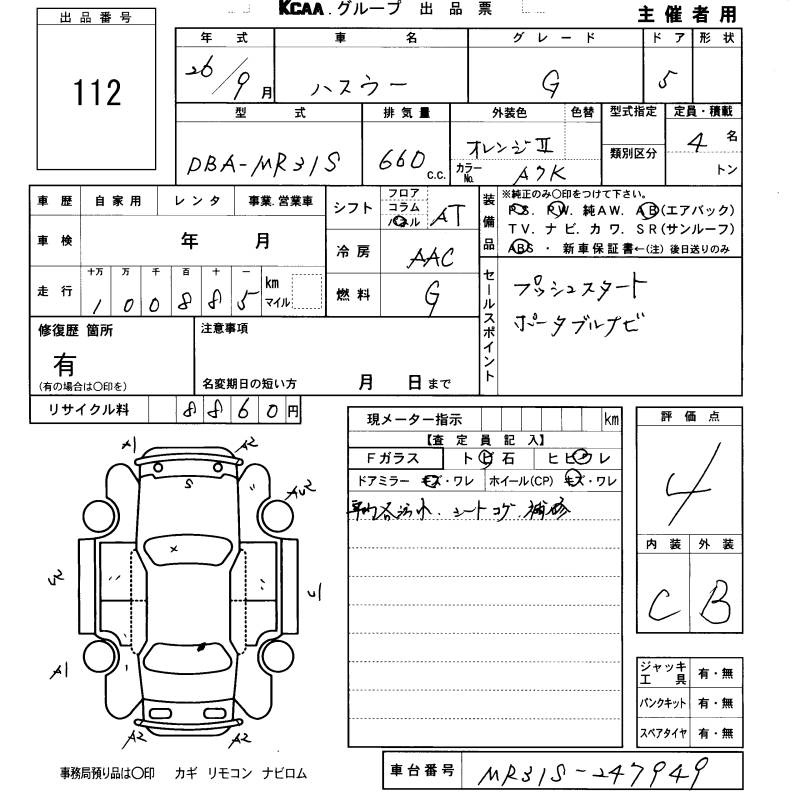 KCAA.グループ 出品票
主催者用
出品番号
112
年式 車名 グレード ドア 形状
26/9月 ハスラー G 5
型式 排気量 外装色 色替 型式指定 定員・積載
DBA-MR31S 660 c.c. オレンジII 4名
カラーNo. A7K 類別区分 トン
車歴 自家用 レンタ 事業.営業車
シフト フロア コラム パネル AT
装備品 ※純正のみ〇印をつけて下さい。
PS. PW. 純AW. AB(エアバック)
TV. ナビ. カワ. SR(サンルーフ)
ABS ・ 新車保証書←(注) 後日送りのみ
車検 年 月
冷房 AAC
走行 十万 万 千 百 十 一
1 0 0 8 8 5 km マイル
燃料 G
セールスポイント
プッシュスタート
ポータブルナビ
修復歴 箇所
有
(有の場合は〇印を)
注意事項
名変期日の短い方 月 日まで
リサイクル料 8 8 6 0 円
現メーター指示 km
【査定員記入】
Fガラス トビ石 ヒビワレ
ドアミラー キズ・ワレ ホイール(CP) キズ・ワレ
シートコゲ.補修
評価点
4
内装 外装
C B
A1 A2
S
A1
A2 A2
ジャッキ工具 有・無
パンクキット 有・無
スペアタイヤ 有・無
事務局預り品は〇印 カギ リモコン ナビロム
車台番号 MR31S-247949